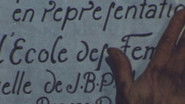 en représentatio
l'Ecole des Fem
elle de J.B.P